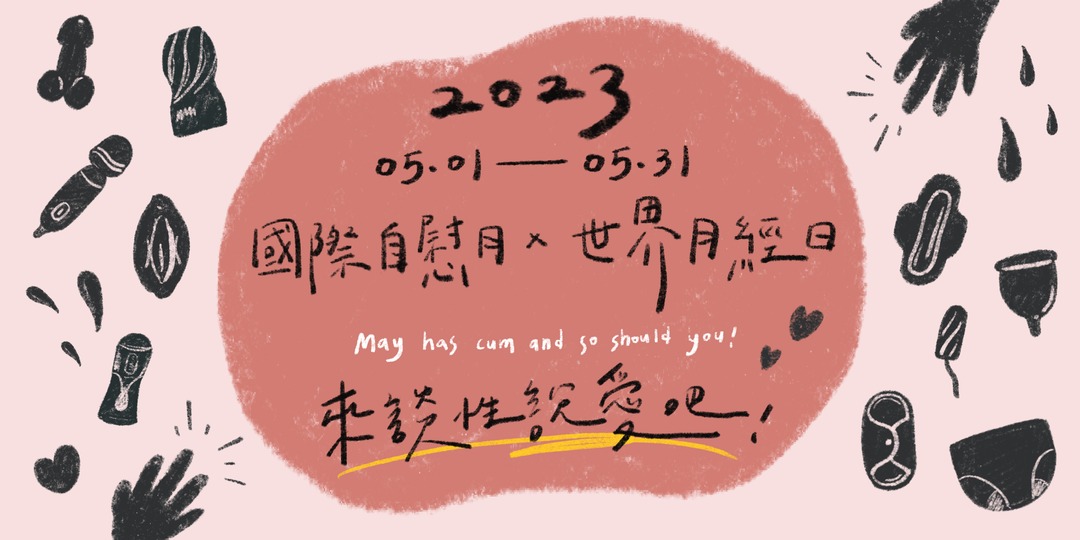 2023
05.01 — 05.31
國際自慰月 × 世界月經日
May has cum and so should you!
來談性說愛吧！